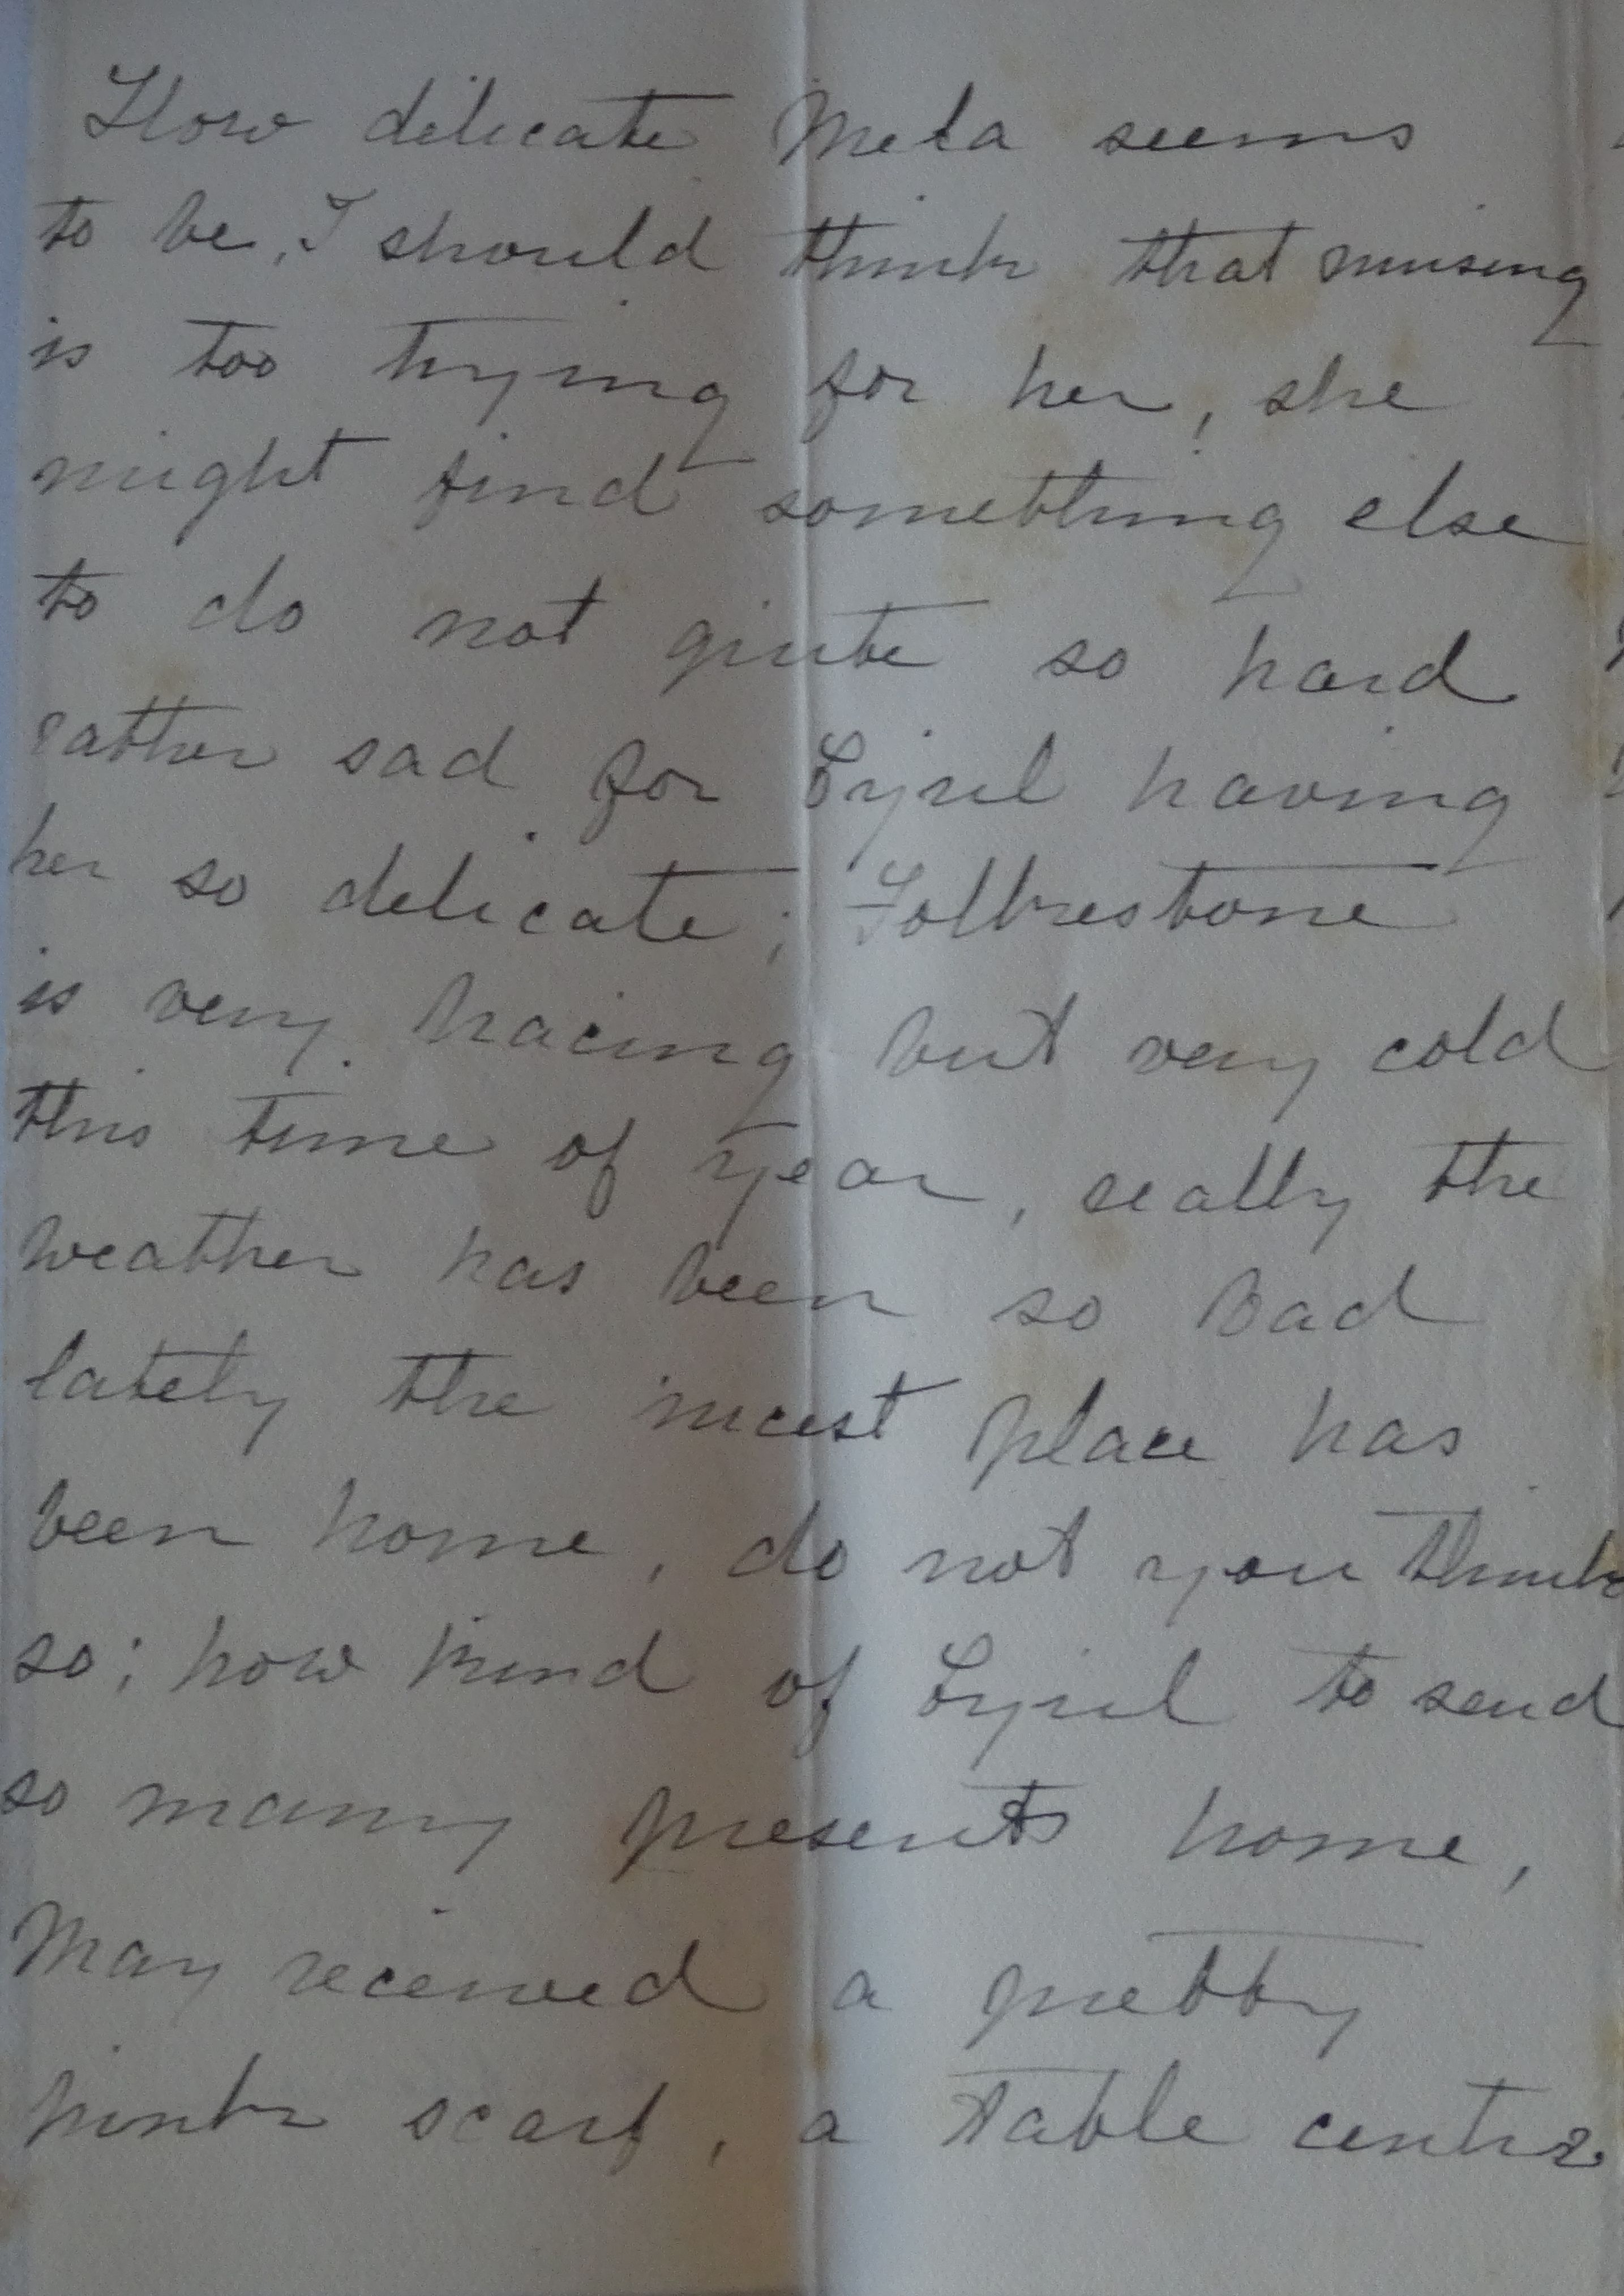 How delicate Meta seems
to be, I should think that nursing
is too trying for her, she
might find something else
to do not quite so hard
rather sad for Cyril having
her so delicate; Folkestone
is very bracing but very cold
this time of year, really the
weather has been so bad
lately the nicest place has
been home, do not you think
so; how kind of Cyril to send
so many presents home,
May received a pretty
pink scarf, a table centre